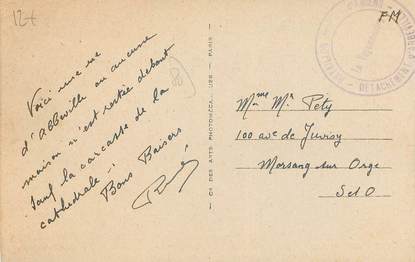 12t
FM
Voici une vue
d'Abbeville ou aucune
maison n'est restée debout
sauf la carcasse de la
cathédrale.
Bons Baisers
René
CIE DES ARTS PHOTOMÉCANIQUES - PARIS
Mme Mr Péty
100 ave de Juvisy
Morsang sur Orge
S et O
DÉTACHEMENT